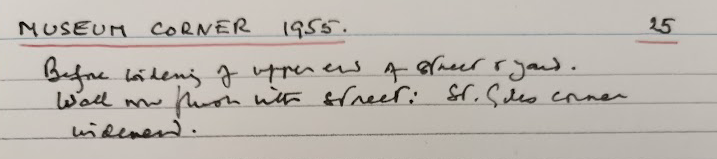 MUSEUM CORNER 1955. 25
Before widening of upper end of street & yard.
Wall now flush with street: St. Giles corner
widened.